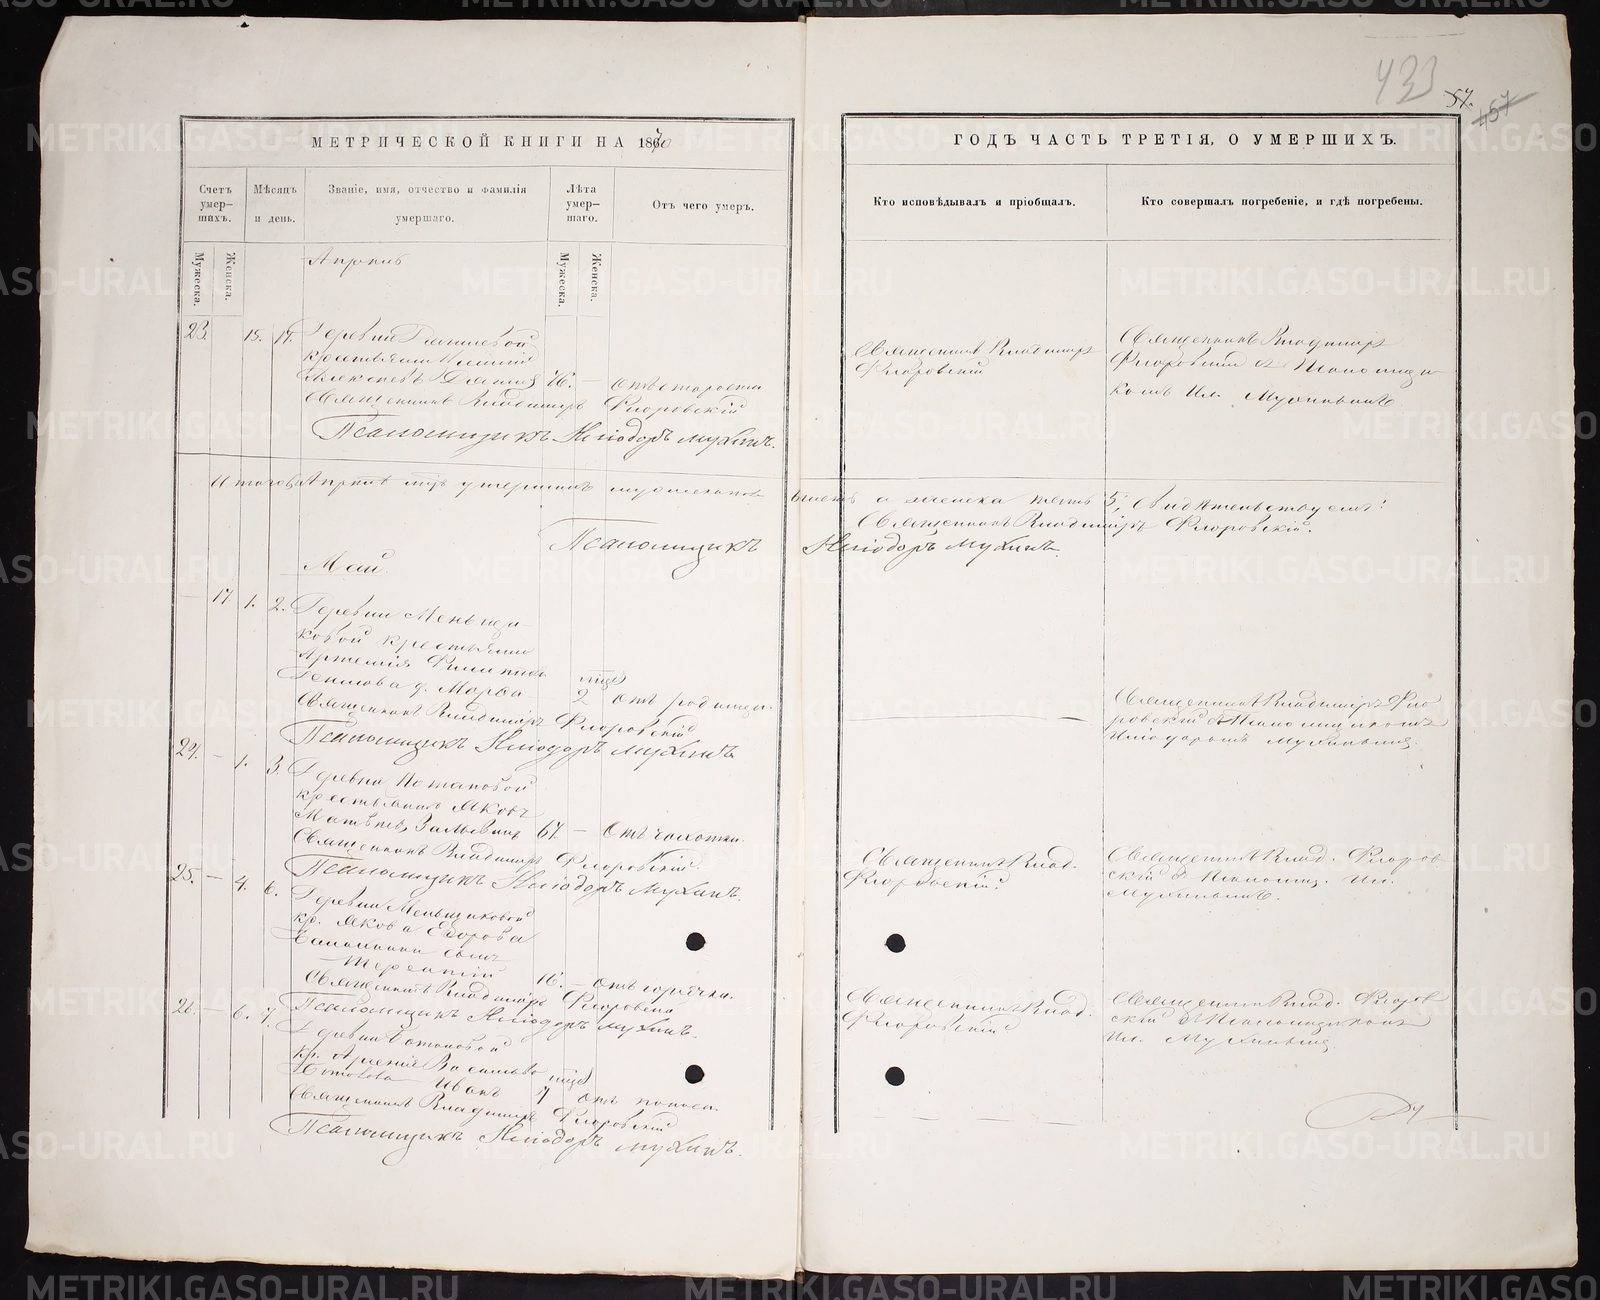 423
57.
457
МЕТРИЧЕСКОЙ КНИГИ НА 1870
ГОДЪ ЧАСТЬ ТРЕТІЯ, О УМЕРШИХЪ.
Счетъ умер-шихъ.
Мѣсяцъ и день.
Званіе, имя, отчество и фамилія умершаго.
Лѣта умер-шаго.
Отъ чего умеръ.
Кто исповѣдывалъ и пріобщалъ.
Кто совершалъ погребеніе, и гдѣ погребены.
Мужеска.
Женска.
Мужеска.
Женска.
Апрѣль
23. 15. 17. Деревни
крестьянинъ
Алексѣевъ 76. — отъ старости
Священникъ Владиміръ Флоровскій
Псаломщикъ Иліодоръ Мухинъ.
Священникъ Владиміръ
Флоровскій
Священникъ Владиміръ
Флоровскій съ Псаломщи-
комъ Ил. Мухинымъ.
Итого въ Апрѣлѣ мцѣ умершихъ мужеска а женска пять 5, свидѣтельствуемъ:
Священникъ Владиміръ Флоровскій.
Псаломщикъ Иліодоръ Мухинъ.
Май.
— 17 1. 2. Деревни Меньщи-
ковой крестьянина
Артемія Филиппова
д. Марѳа мцѣ 2 отъ родимца.
Священникъ Владиміръ Флоровскій
Псаломщикъ Иліодоръ Мухинъ
Священникъ Владиміръ Фло-
ровскій съ Псаломщикомъ
Иліодоромъ Мухинымъ.
24. — 1. 3. Деревни Потаповой
крестьянинъ Яковъ
Матвѣевъ 67. — Отъ чахотки.
Священникъ Владиміръ Флоровскій.
Псаломщикъ Иліодоръ Мухинъ.
Священникъ Влад.
Флоровскій.
Священникъ Влад. Флоров-
скій съ Псаломщ. Ил.
Мухинымъ.
25. — 4. 6. Деревни Меньщиковой
кр. Якова Едорова
сынъ
Терентій 16. — отъ горячки.
Священникъ Владиміръ Флоровскій
Псаломщикъ Иліодоръ Мухинъ.
Священникъ Влад.
Флоровскій
Священникъ Влад. Флоров-
скій съ Псаломщикомъ
Ил. Мухинымъ.
26. — 6. 7. Деревни
кр. Арсенія Васильева
Иванъ мцѣ 7 отъ поноса.
Священникъ Владиміръ Флоровскій
Псаломщикъ Иліодоръ Мухинъ.
METRIKI.GASO-URAL.RU